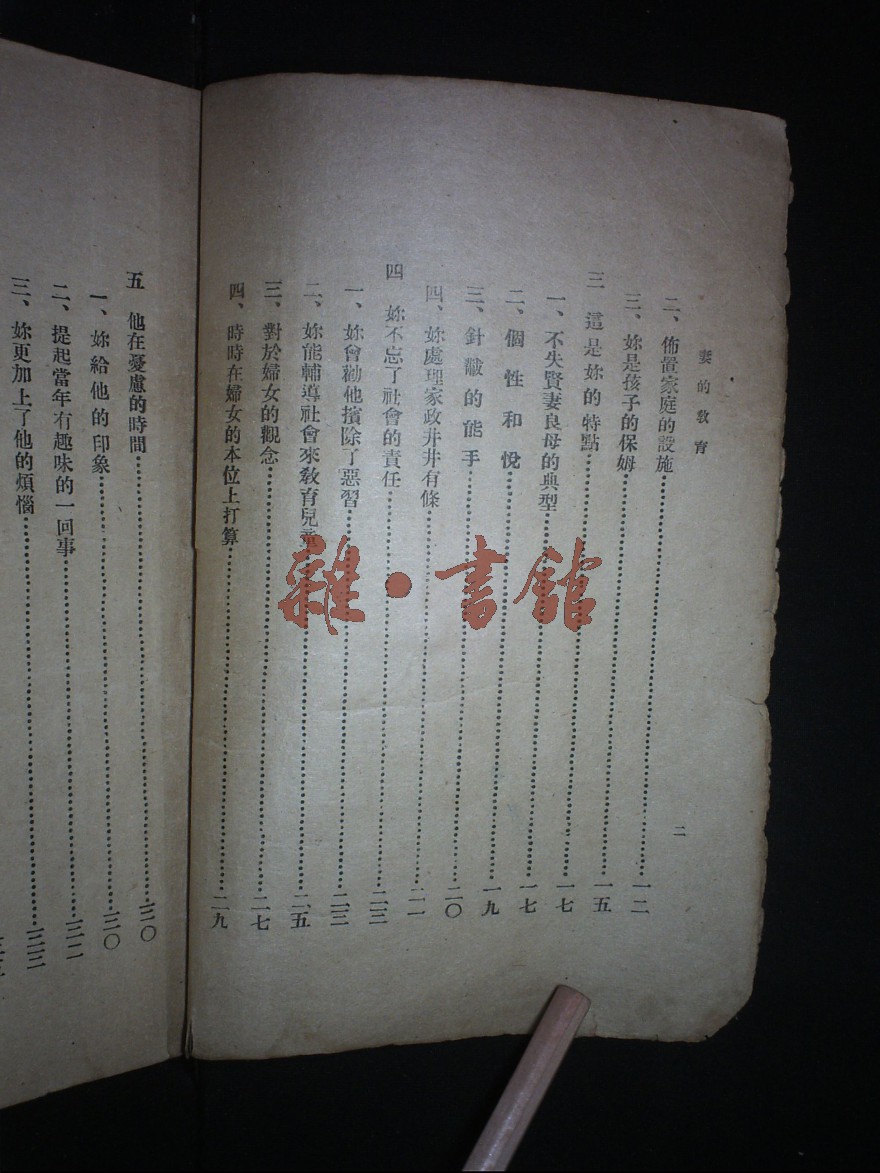 妻的教育
二
二、佈置家庭的設施……一二
三、妳是孩子的保姆……一五
三 這是妳的特點……一七
一、不失賢妻良母的典型……一七
二、個性和悅……一九
三、針黻的能手……二〇
四、妳處理家政井井有條……二一
四 妳不忘了社會的責任……二三
一、妳會勸他擯除了惡習……二三
二、妳能輔導社會來教育兒童……二五
三、對於婦女的觀念……二七
四、時時在婦女的本位上打算……二九
五 他在憂慮的時間……三〇
一、妳給他的印象……三〇
二、提起當年有趣味的一回事……三二
三、妳更加上了他的煩惱……三三
雜·書館